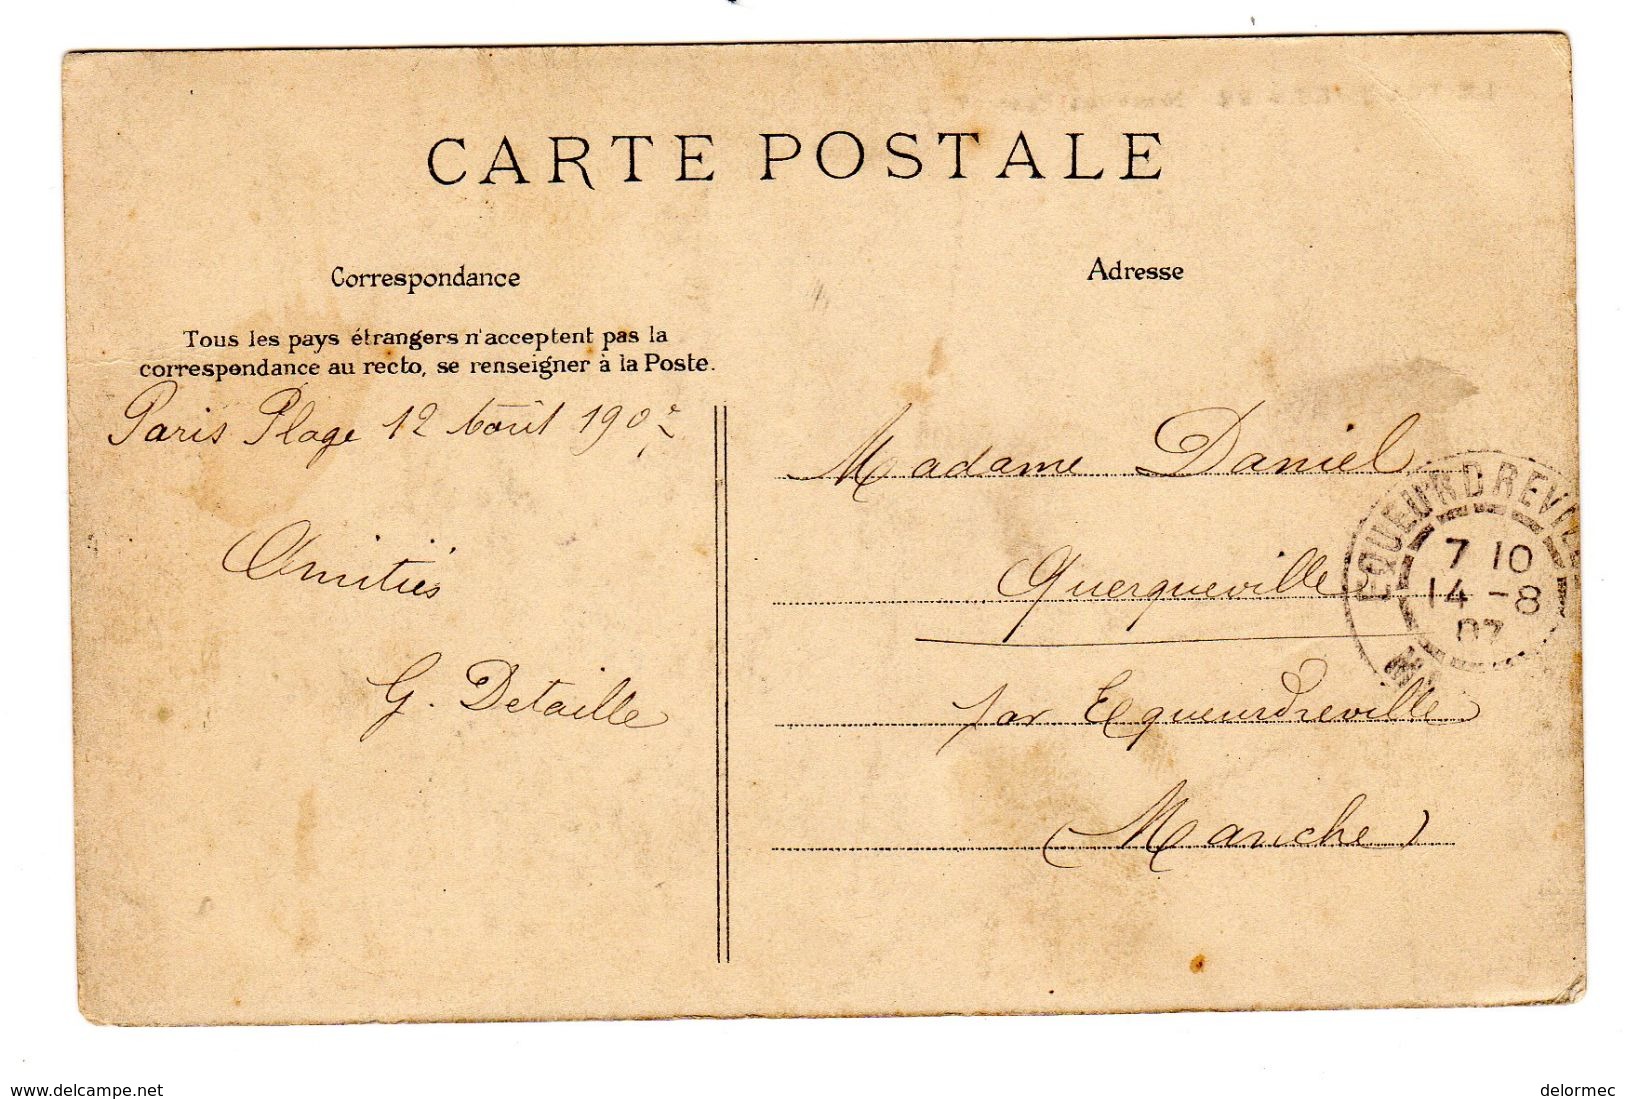 CARTE POSTALE
Correspondance
Adresse
Tous les pays étrangers n'acceptent pas la
correspondance au recto, se renseigner à la Poste.
Paris Plage 12 Août 1907
Amitiés
G. Detaille
Madame Daniel
Querqueville
par Equeurdreville
(Manche)
EQUEURDREVILLE
7 10
14 - 8
07
www.delcampe.net
delormec